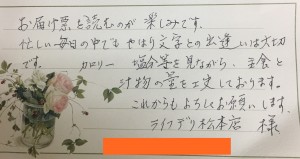 お届け票と読むのが楽しみです。
忙しい毎日の中でもやはり文字との出逢いは大切
です。 カロリー 塩分等を見ながら、主食と
汁物の量を工夫しております。
これからもよろしくお願いします。
ライフデリ松本店 様